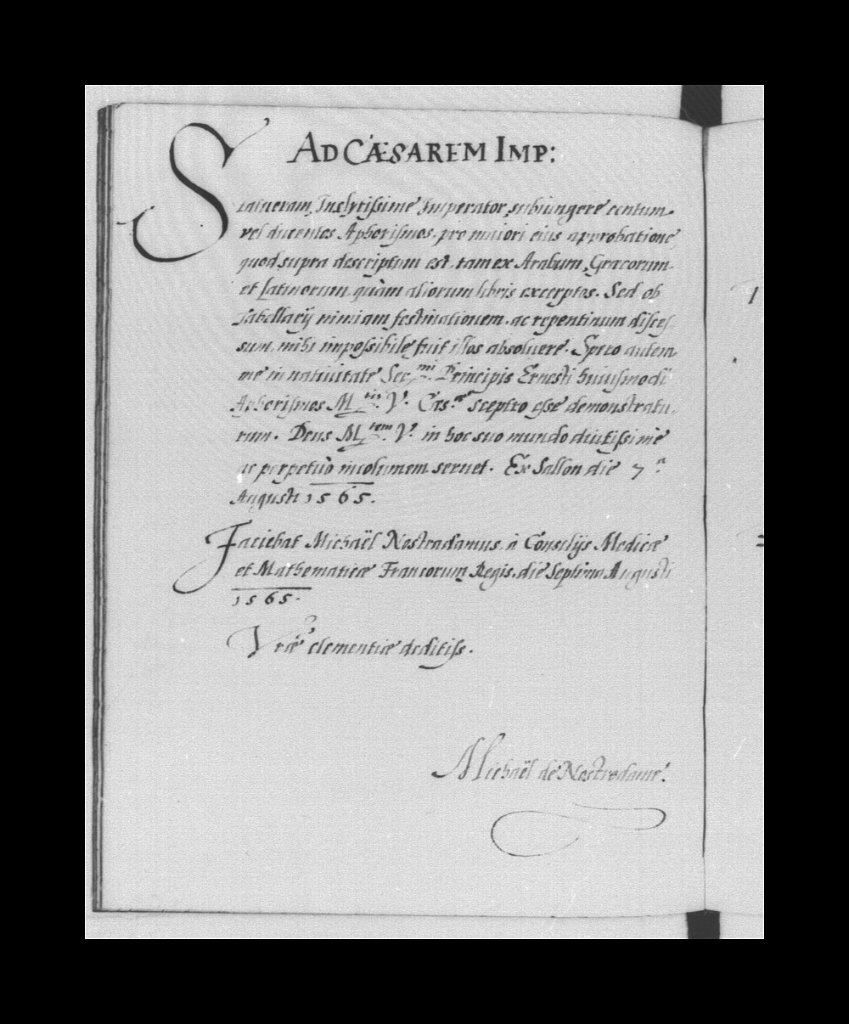 AD CÆSAREM IMP:
Statueram, Inclytissime Imperator, subiungere centum
vel ducentos Aphorismos, pro maiori eius approbatione
quod supra descriptum est, tam ex Arabum, Græcorum
et Latinorum, quàm aliorum libris excerptos. Sed ob
Tabellarij nimiam festinationem, ac repentinum disces,
sum, mihi impossibile fuit illos absolvere. Spero autem
me in nativitate Ser.mi Principis Ernesti huiusmodi
Aphorismos M.tis V.
sceptro esse demonstratu,
rum. Deus M.tem V. in hoc suo mundo diutissimè
ac perpetuò incolumem servet. Ex Sallon die 7.
Augusti 1565.
Faciebat Michaël Nostradamus, à Consilijs Medicæ
et Mathematicæ Francorum Regis, die Septima Augusti
1565.
Vræ clementiæ deditiss.
Michaël de Nostredame.
1